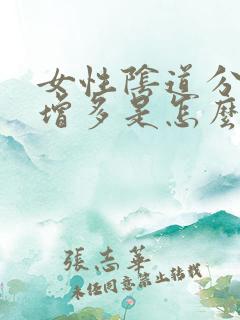 女性陰道分
增多是怎麼
張志華
未經同意禁止轉載